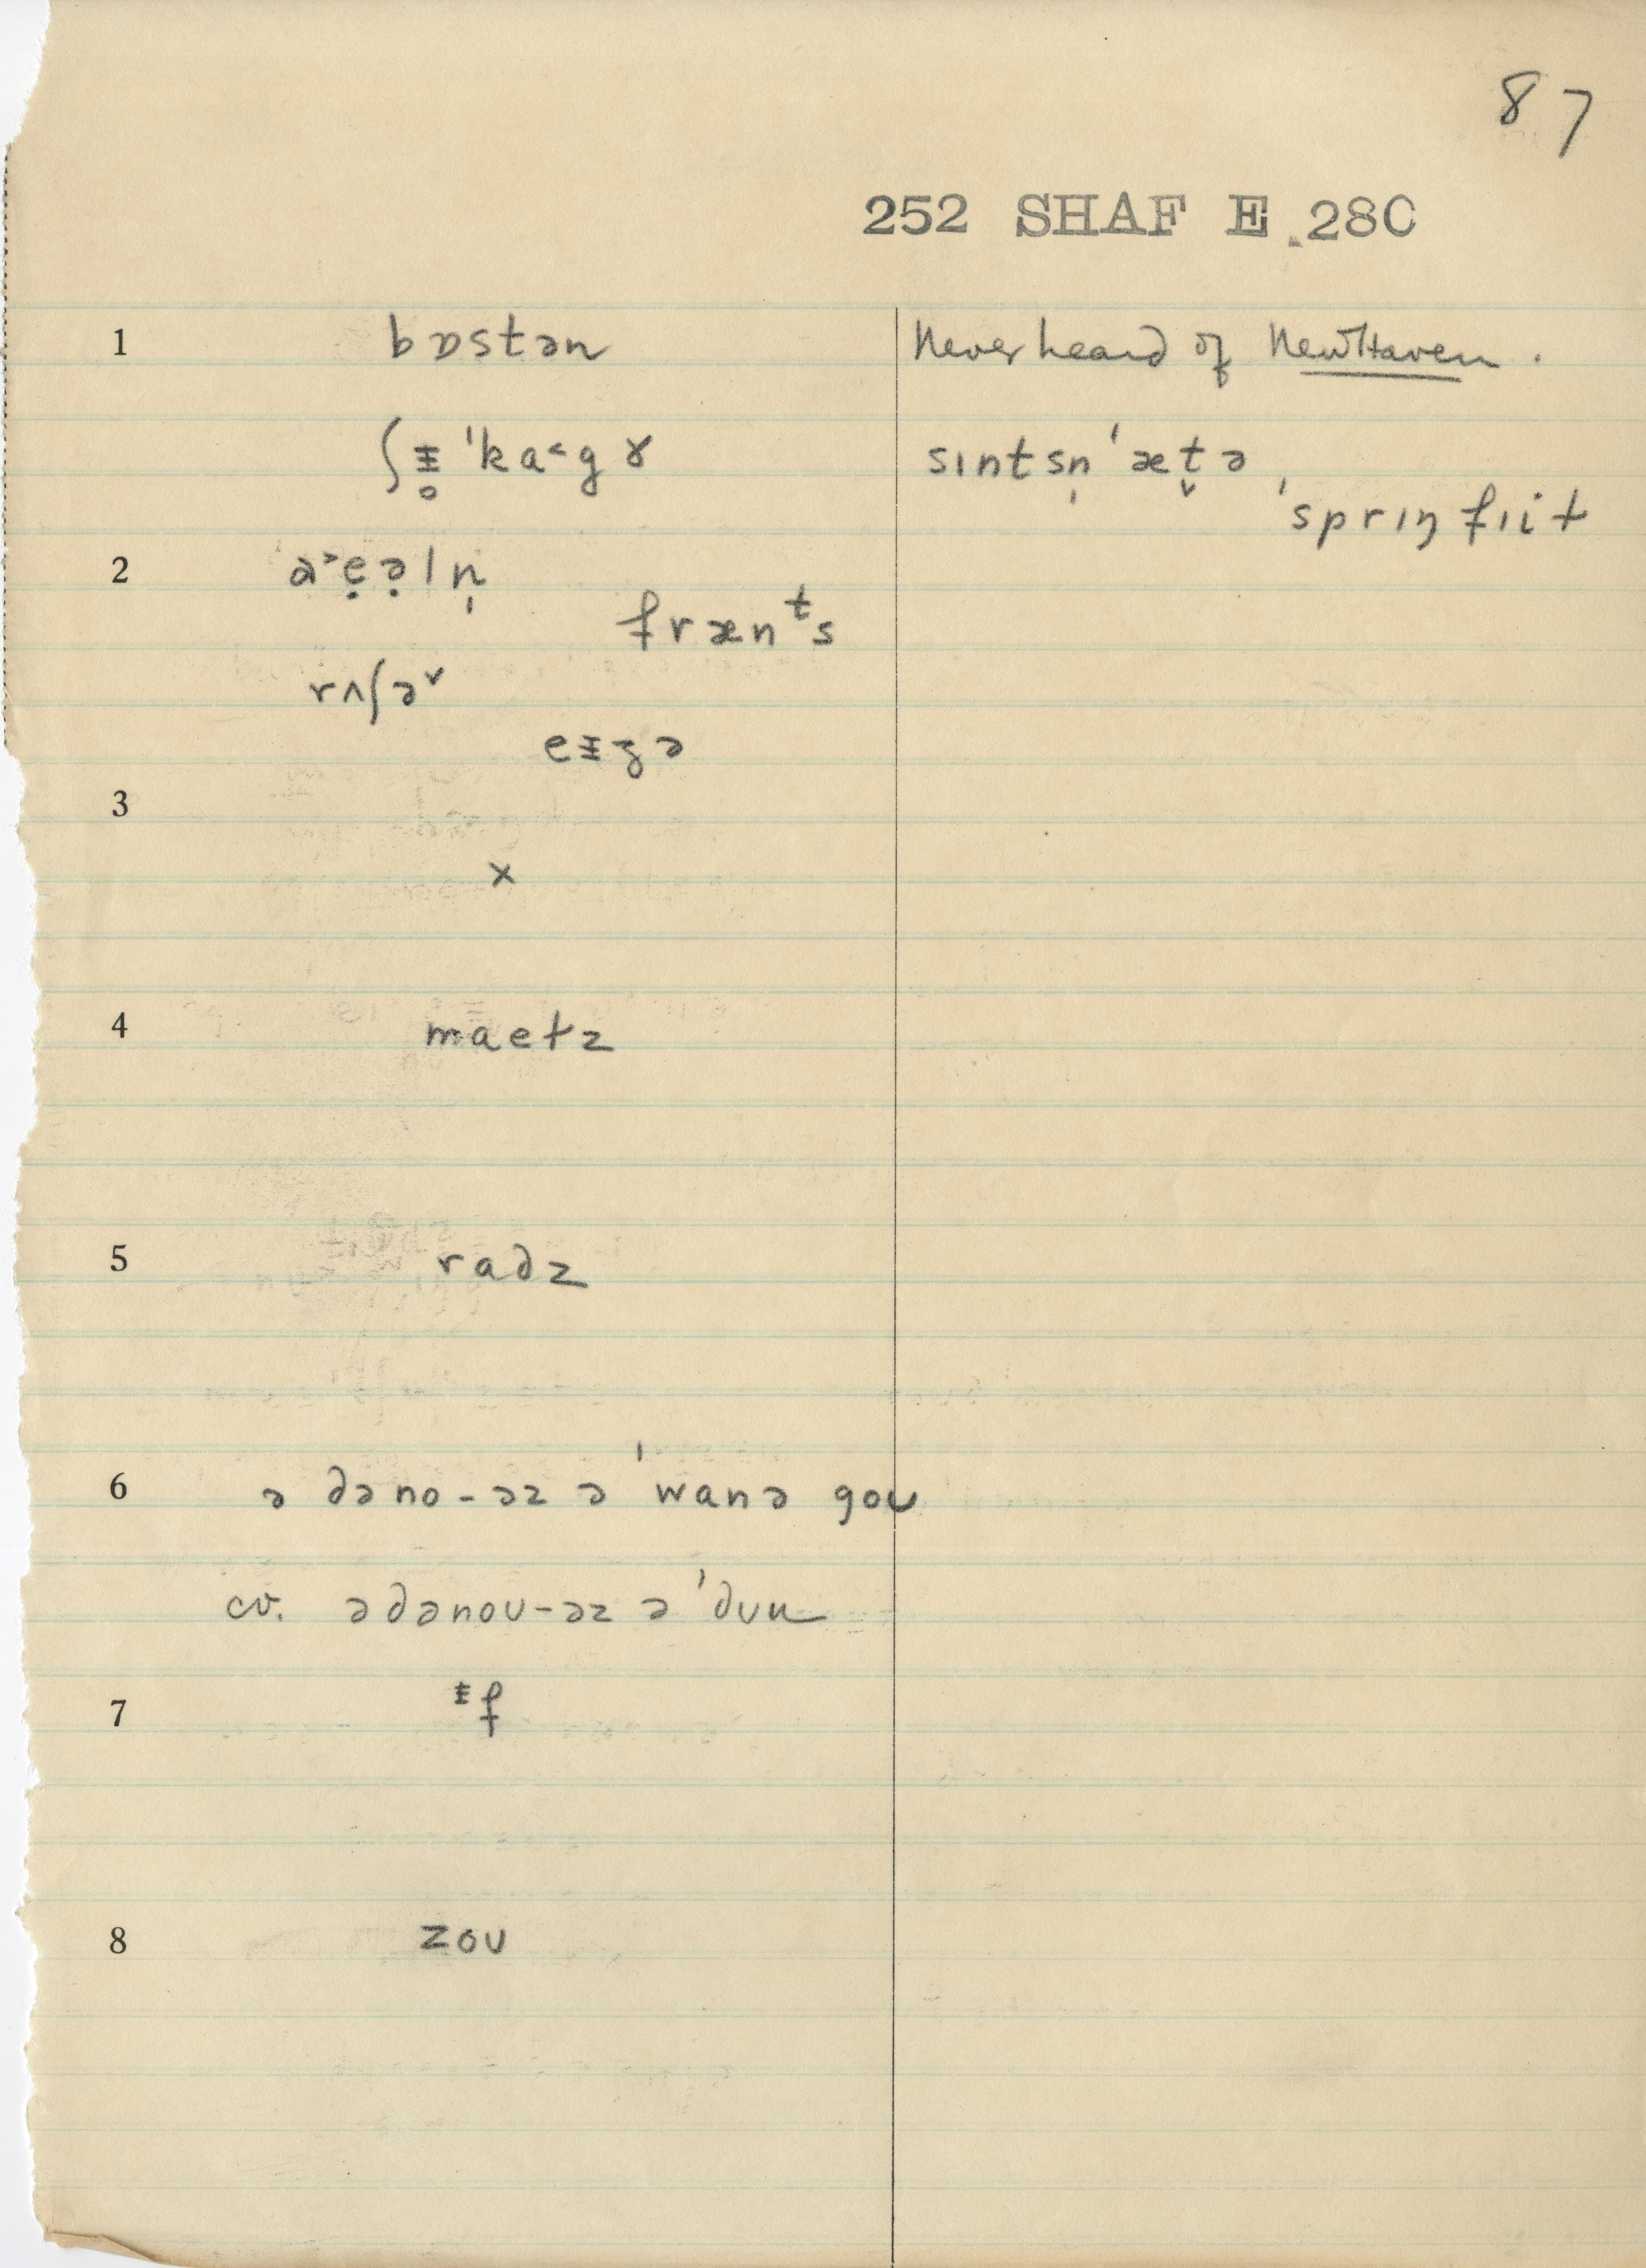 87
252 SHAF E 280
1 bɒstən
Never heard of New Haven.
ʃᵻ̥ ˈka˂gɤ
sɪntsn̩ ˈæt̬ə
ˈsprɪŋ fɪit
2 a˃ẹə̣ln̩
frænᵗs
rʌʃə˅
eᵻʒə
3
×
4 maetz
5 radz
6 ə dəno-əz ə ˈwanə goʊ
cv. ədənoʊ-əz ə ˈdʊu
7 ᵻf
8 zoʊ